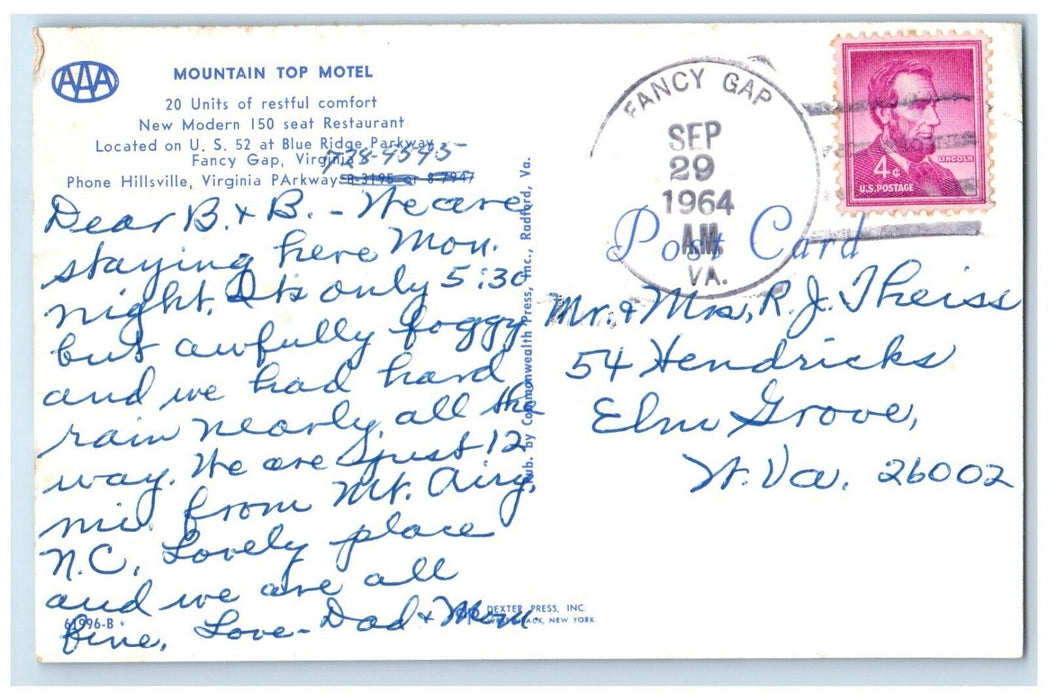 AAA
MOUNTAIN TOP MOTEL
20 Units of restful comfort
New Modern 150 seat Restaurant
Located on U. S. 52 at Blue Ridge Parkway
Fancy Gap, Virginia
728-4545
Phone Hillsville, Virginia PArkway 8-3195 or 8-7947
Dear B. & B. - We are
staying here Mon.
night. Its only 5:30
but awfully foggy
and we had hard
rain nearly all the
way. We are just 12
mi. from Mt. Airy,
N.C. Lovely place
and we are all
fine. Love - Dad & Mom
61996-B
Pub. by Commonwealth Press, Inc., Radford, Va.
DEXTER PRESS, INC.
NEW YORK
FANCY GAP
SEP
29
1964
A.M.
VA.
LINCOLN
4¢
U.S. POSTAGE
Post Card
Mr. & Mrs. R. J. Theiss
54 Hendricks
Elm Grove,
W. Va. 26002